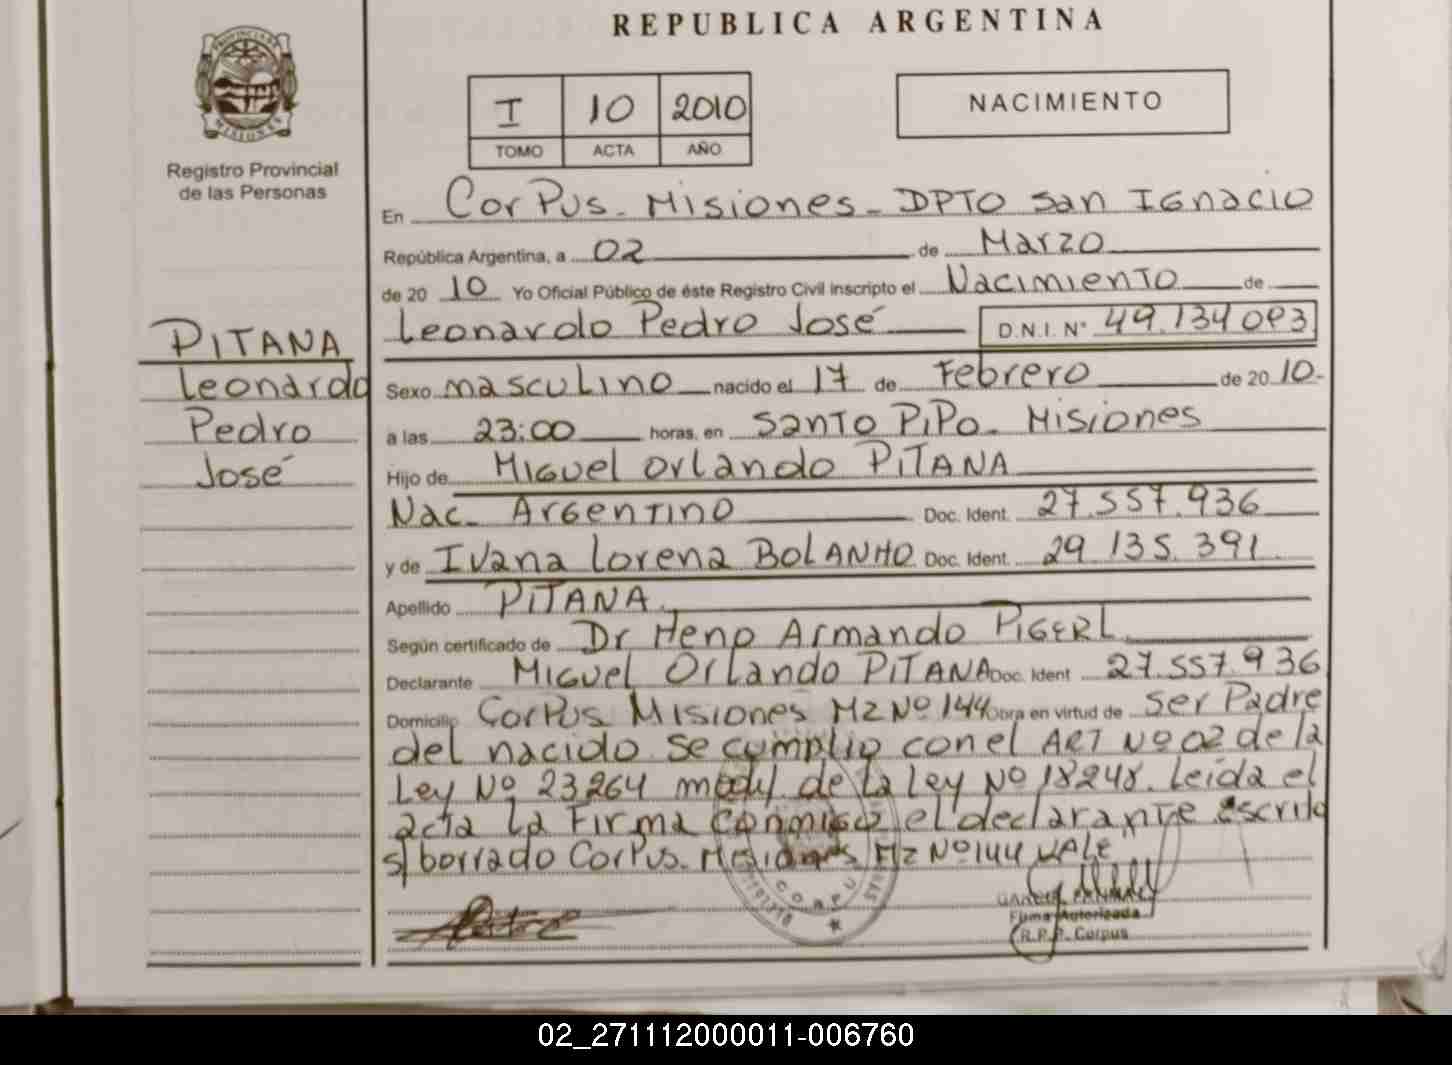 REPUBLICA ARGENTINA
PROVINCIA DE
MISIONES
Registro Provincial
de las Personas
I 10 2010
TOMO ACTA AÑO
NACIMIENTO
En Corpus - Misiones - DPTO San Ignacio
República Argentina, a 02 de Marzo
de 2010 Yo Oficial Público de éste Registro Civil inscripto el Nacimiento de
Leonardo Pedro José D.N.I. Nº 49.134 093
PITANA
Leonardo
Pedro
José
Sexo masculino nacido el 17 de Febrero de 2010-
a las 23:00 horas, en Santo Pipo - Misiones
Hijo de Miguel Orlando PITANA
Nac. Argentino Doc. Ident. 27.557.936
y de Ivana Lorena BOLANHO Doc. Ident. 29 135.391
Apellido PITANA
Según certificado de Dr Armando PIGERL
Declarante Miguel Orlando PITANA Doc. Ident 27.557.936
Domicilio Corpus Misiones Mz Nº 144 Obra en virtud de ser Padre
del nacido se cumplio con el ART Nº 02 de la
Ley Nº 23264 modif de la Ley Nº 18248. Leida el
acta la Firma conmigo el declarante escrito
s/ borrado Corpus - Misiones Mz Nº 144 VALE
CORPUS
Firma Autorizada
R.P.P. Corpus
02_271112000011-006760